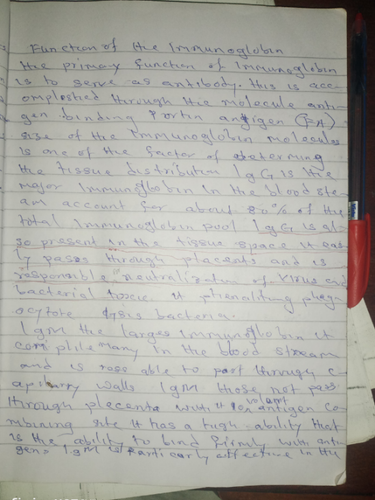 Function of the Immunoglobin
the primary function of Immunoglobin
is to serve as antibody. This is acc-
omploshed through the molecule anti-
gen binding Portin antigen (FA)
size of the immunoglobin molecules
is one of the factor of determing
the tissue distribution IgG is the
major Immunoglobin in the blood stre-
am account for about 80% of the
total Immunoglobin pool IgG is al-
so present in the tissue space it eas-
ly pases through placenta and is
responsible neutralization of virus and
bacterial toxic. it phag
ocytote bacteria.
IgM the larges immunoglobin it
in the blood stream
and is able to past through c-
apillary walls IgM those not pass
through placenta with it volant antigen co-
mbining site it has a high ability that
is the ability to bind firmly with anti-
gens IgM is effective in the